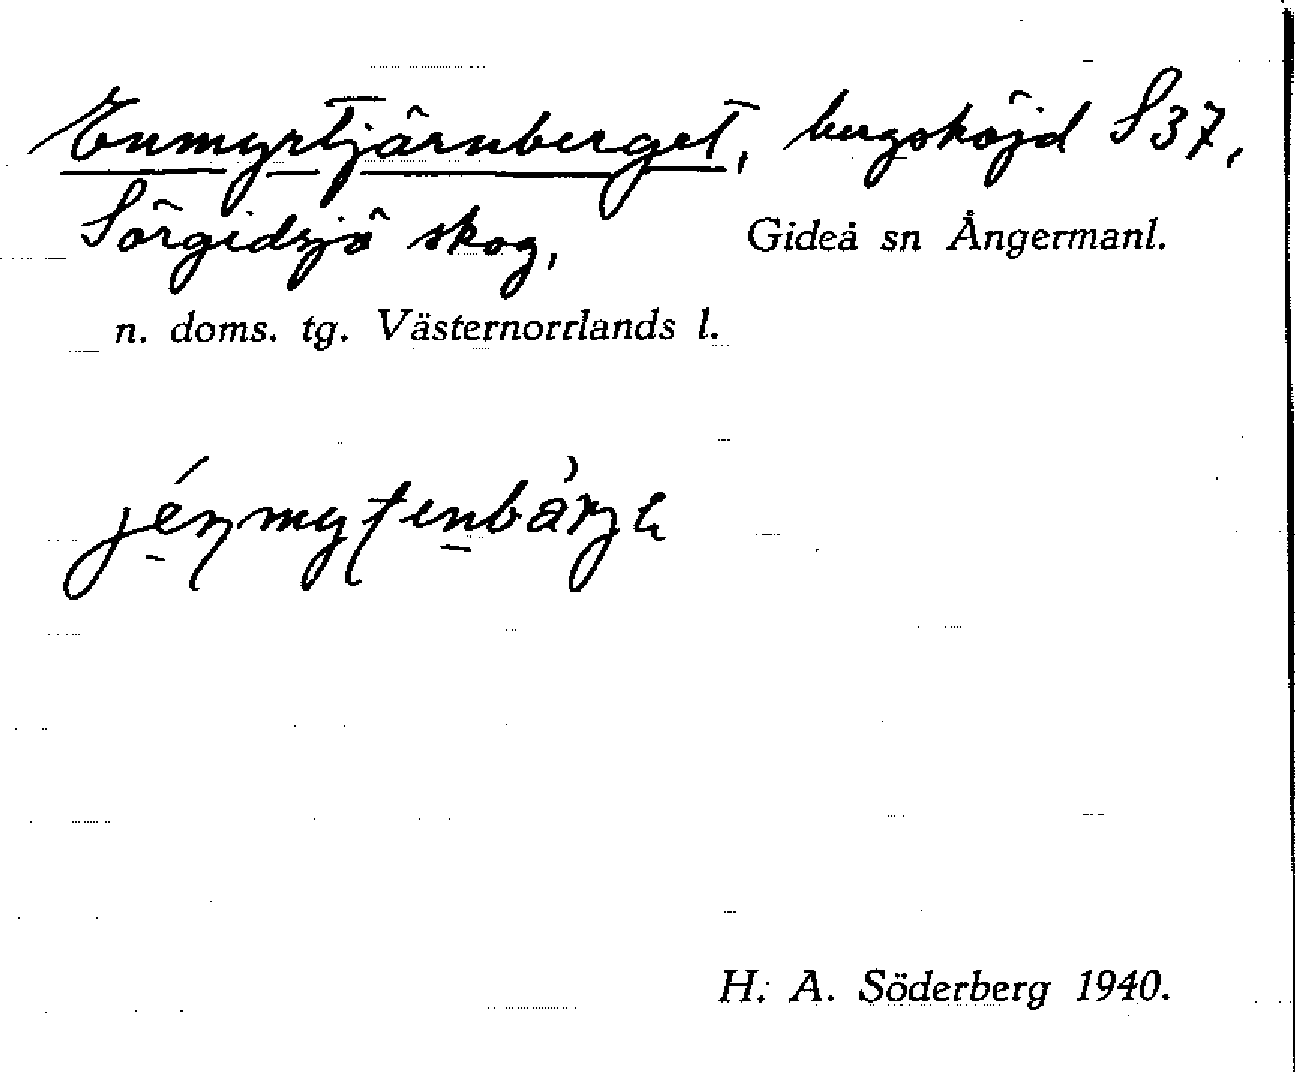 Enmyrtjärnberget, bergshöjd S37,
Sörgidsjö skog, Gideå sn Ångermanl.
n. doms. tg. Västernorrlands l.
H. A. Söderberg 1940.